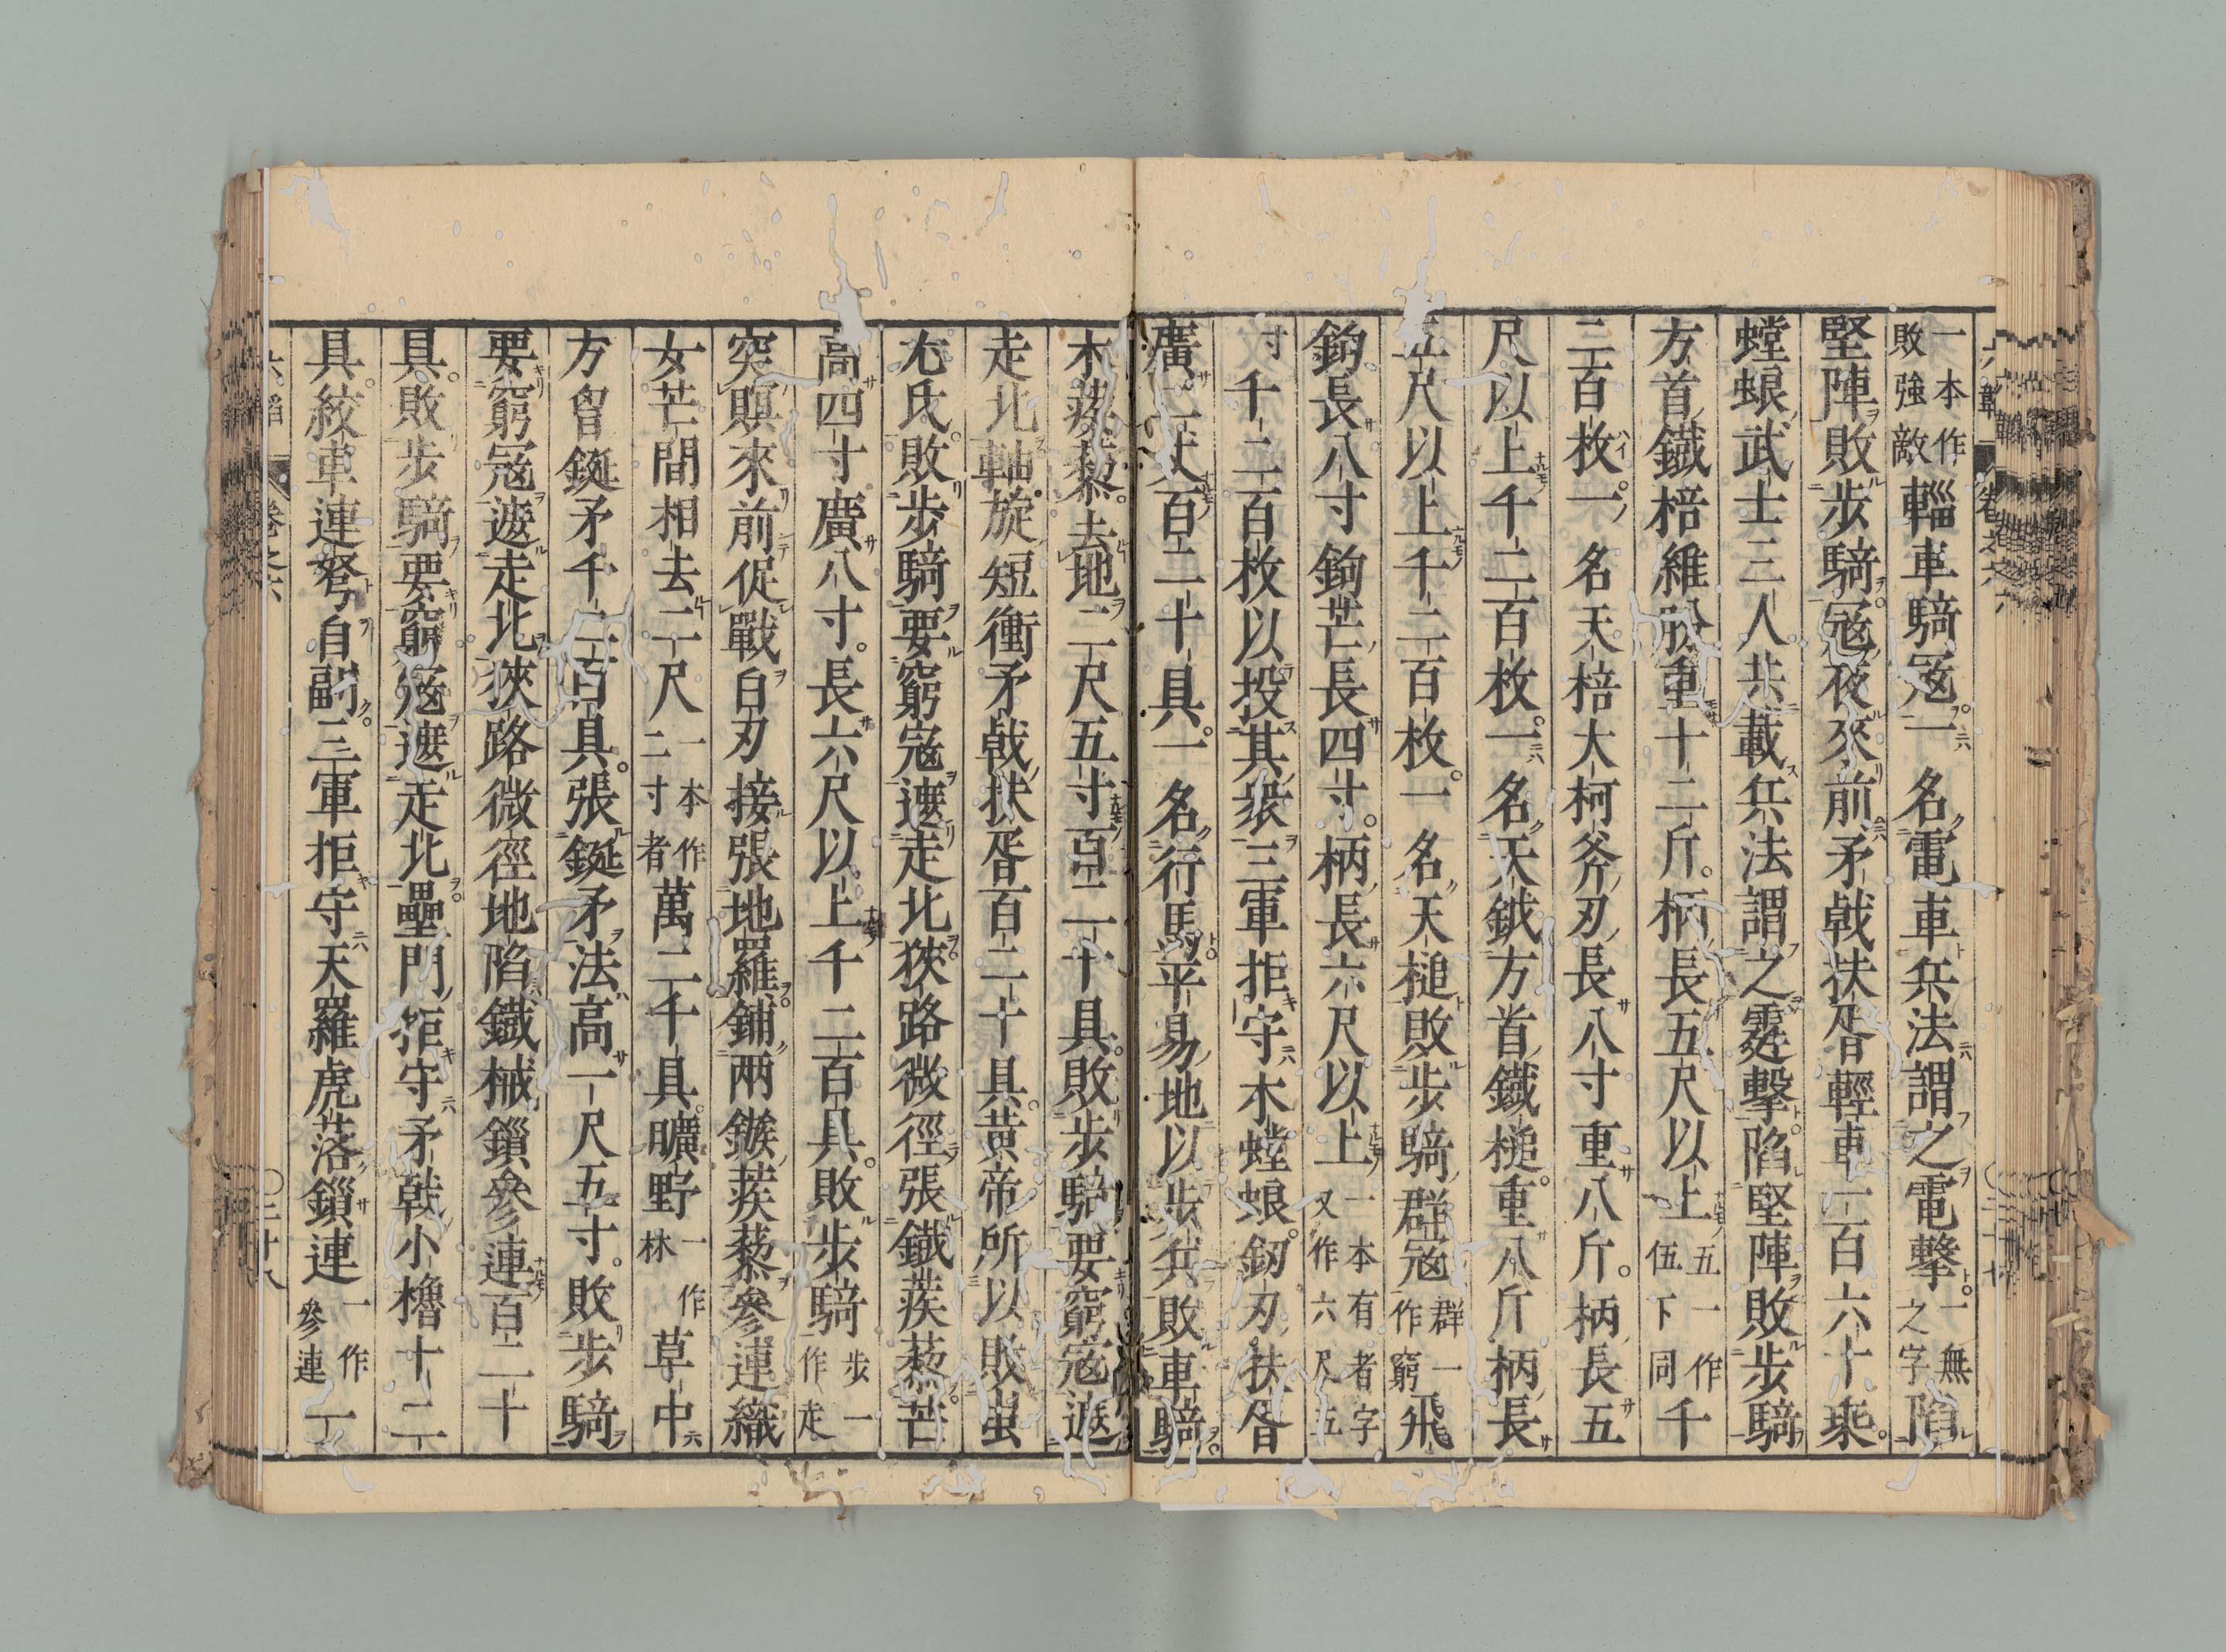 一本作敗強敵輜車騎冦一名電車兵法謂之電擊一無之字陷
堅陣敗步騎冦夜來前矛戟扶胥輕車一百六十乘
螳蜋武士三人共載兵法謂之霆擊陷堅陣敗步騎
方首鐵棓維肦重十二斤柄長五尺以上五一作伍下同千
二百枚一名天棓大柯斧刃長八寸重八斤柄長五
尺以上千二百枚一名天鉞方首鐵槌重八斤柄長
五尺以上千二百枚一名天槌敗步騎群冦群一作窮飛
鉤長八寸鉤芒長四寸柄長六尺以上一本有者字又作六尺五
寸千二百枚以投其衆三軍拒守木螳蜋劔刃扶胥
廣二丈百二十具一名行馬平易地以步兵敗車騎
木蒺藜去地二尺五寸百二十具敗步騎要窮冦遮
走北軸旋短衝矛戟扶胥百二十具黃帝所以敗蚩
尤氏敗步騎要窮冦遮走北狹路微徑張鐵蒺藜芒
高四寸廣八寸長六尺以上千二百具敗步騎步一作走
突瞑來前促戰白刃接張地羅鋪兩鏃蒺藜參連織
女芒間相去二尺一本作二寸者萬二千具曠野一作林草中
方胷鋋矛千二百具張鋋矛法高一尺五寸敗步騎
要窮冦遮走北狹路微徑地陷鐵械鎖參連百二十
具敗步騎要窮冦遮走北壘門拒守矛戟小櫓十二
具絞車連弩自副三軍拒守天羅虎落鎖連一作參連一